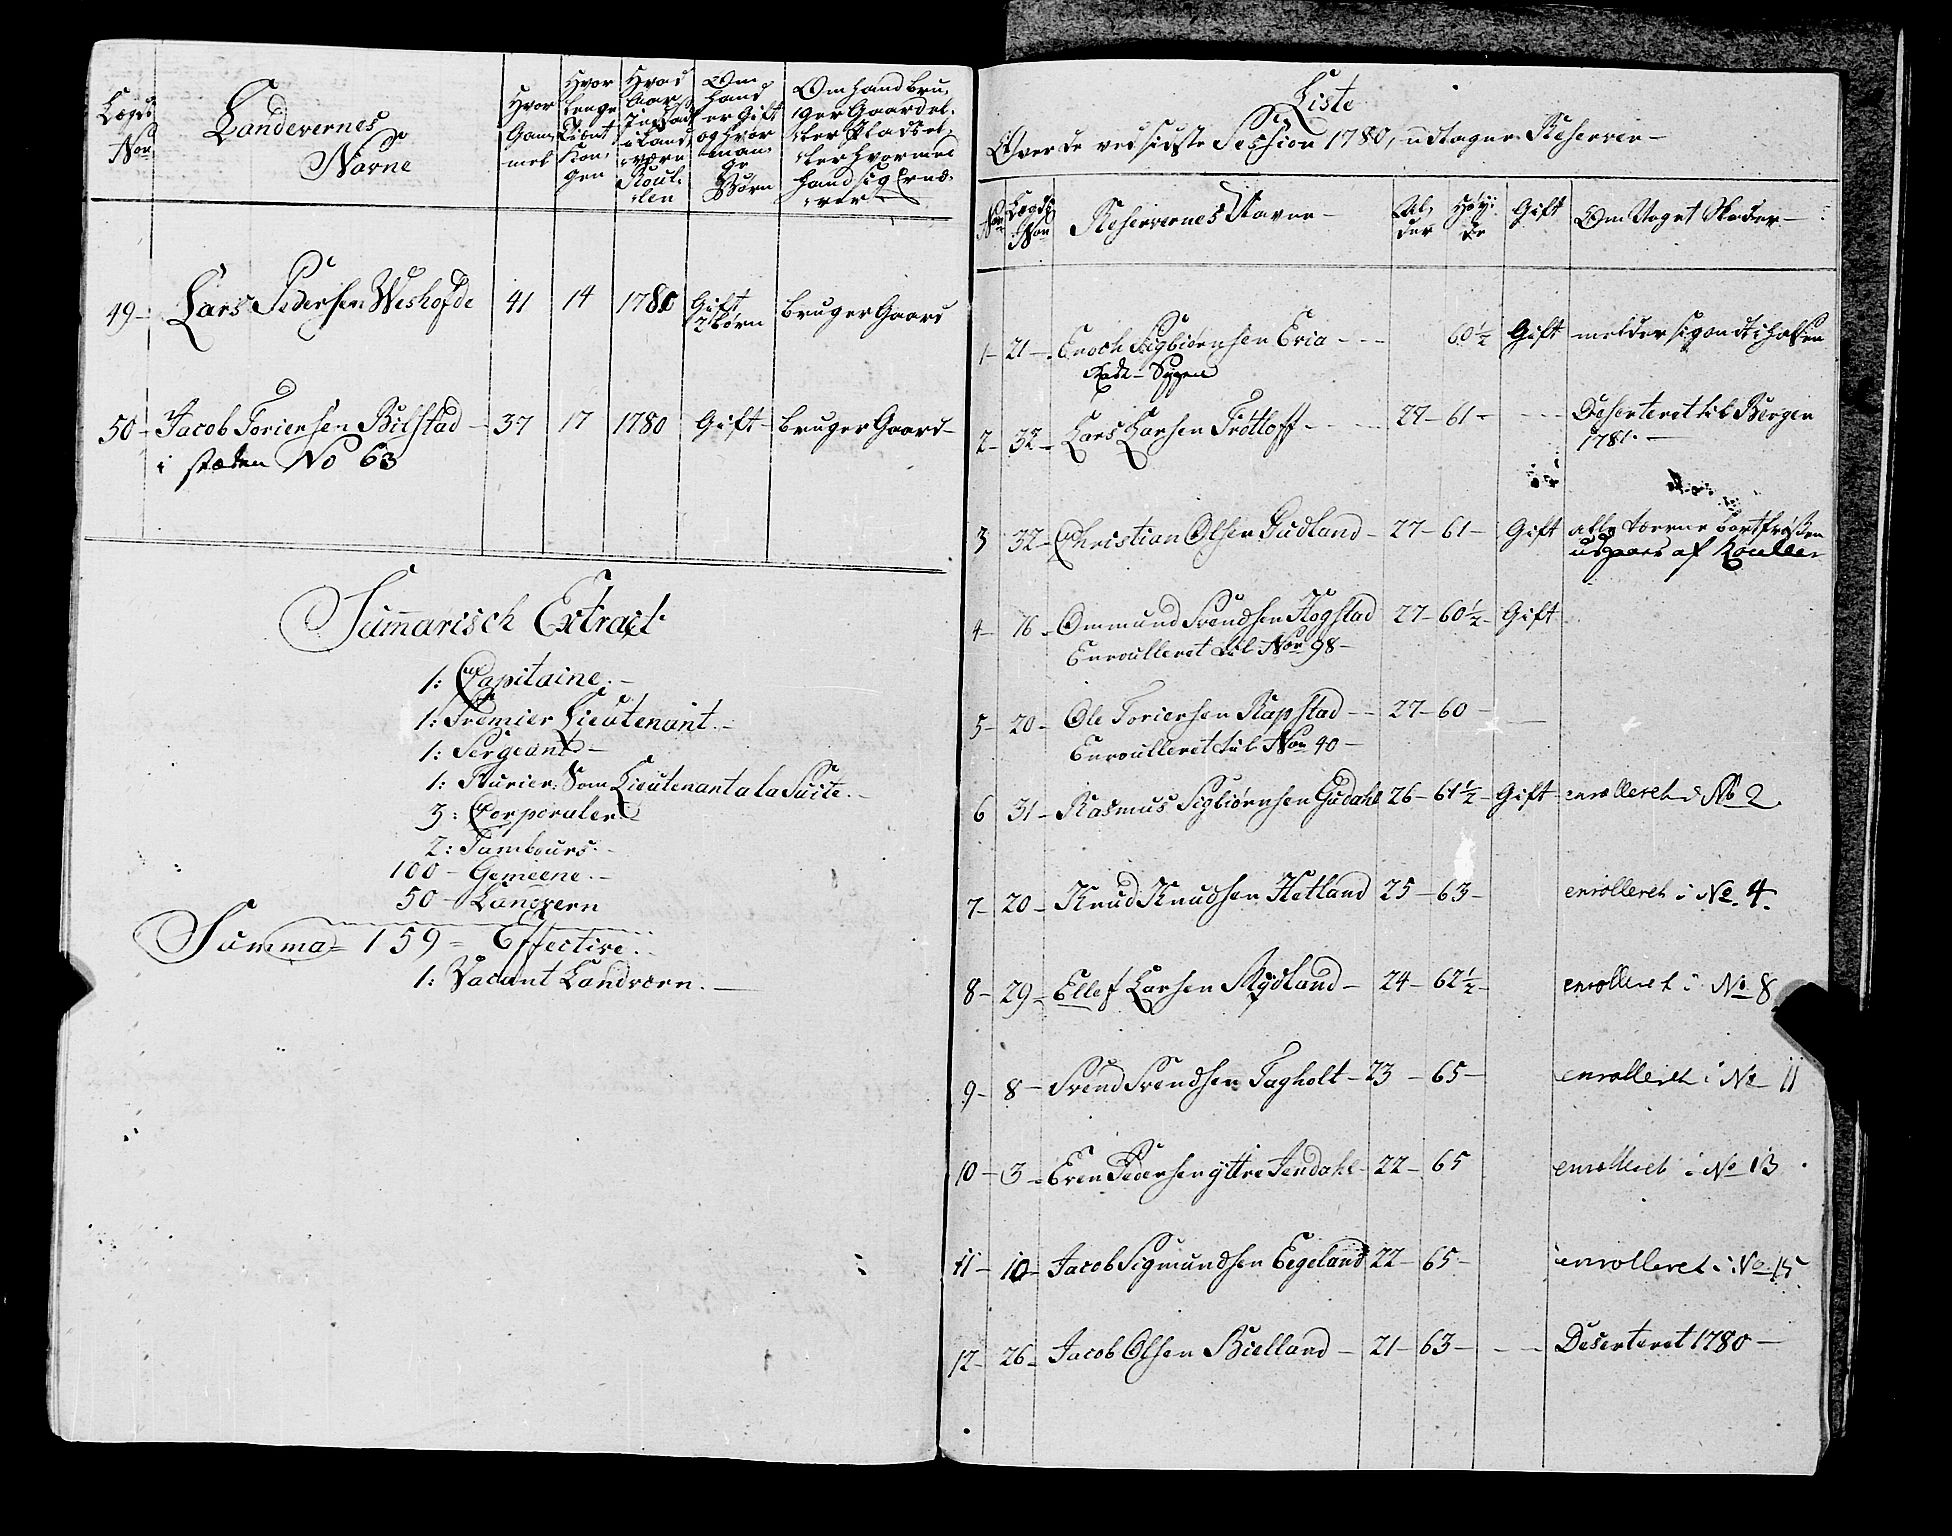 Lægds Nor
Landevernes Navne
Hvor Gammel
Hvor lenge Tiænt Kongen
Hvad Aar i Landværn Roullen
Om hand er Gift og hvor mange Børn
Om hand bruger Gaard eller Pladset, eller hvormed hand sig Ernærer
49 Lars Pedersen Weshofde 41 14 1780 Gift 2 børn bruger Gaard
50 Jacob Toriersen Bilstad 37 17 1780 Gift bruger Gaard
i stæden No 63
Summarisch Extract
1: Capitaine
1: Premier Lieutenant
1: Sergeant
1: Furier: Som Lieutenant a la Suite
3: Corporaler
2: Tambours
100 Gemeene
50 Landvern
Summa 159 Effective
1: Vacant Landværn
Liste
Over de ved sidste Session 1780, udtagne Reserver
Nor
Lægds Nor
Reservernes Navne
Alder
Høyde
Gift
Om Noget Skader
1 21 Enoch Sigbiørnsen Eria 60½ Gift melder sig
Rade Sygen
2 32 Lars Larsen Trøtloff 27 61 Deserteret til Bergen
1781
3 32 Christian Olsen Gudland 27 61 Gift alle tæerne bortfrøssen
udgaaes af Roullen
4 16 Ommund Svendsen Hogstad 27 60½ Gift
Enroulleret til Nor 98
5 20 Ole Toriersen Rapstad 27 60
Enroulleret til Nor 40
6 31 Rasmus Sigbiørnsen Gudahl 26 61½ Gift enrolleret i No 2
7 20 Knud Knudsen Hetland 25 63 enrolleret i No 4
8 29 Ellef Larsen Rydland 24 62½ enrolleret i No 8
9 8 Svend Svendsen Fagholt 23 65 enrolleret i No 11
10 3 Even Pedersen yttre Jendahl 22 65 enrolleret i No 13
11 10 Jacob Sigmundsen Eegeland 22 65 enrolleret i No 15
12 26 Jacob Olsen Bielland 21 63 Deserteret 1780